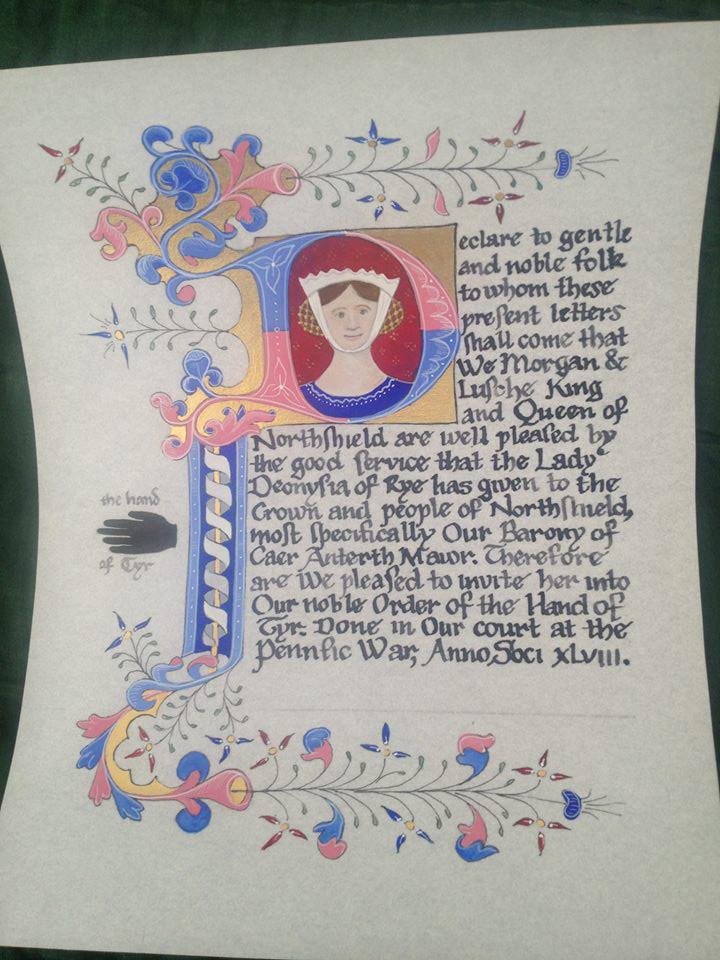 Declare to gentle
and noble folk
to whom these
preſent letters
ſhall come that
We Morgan &
Luſche King
and Queen of
Northshield are well pleased by
the good ſervice that the Lady
Deonysia of Rye has given to the
Crown and people of Northſhield,
moſt ſpecifically Our Barony of
Caer Anterth Mawr. Therefore
are We pleased to invite her into
Our noble Order of the Hand of
Tyr. Done in Our court at the
Pennſic War, Anno Soci XLVIII.
the hand
of Tyr